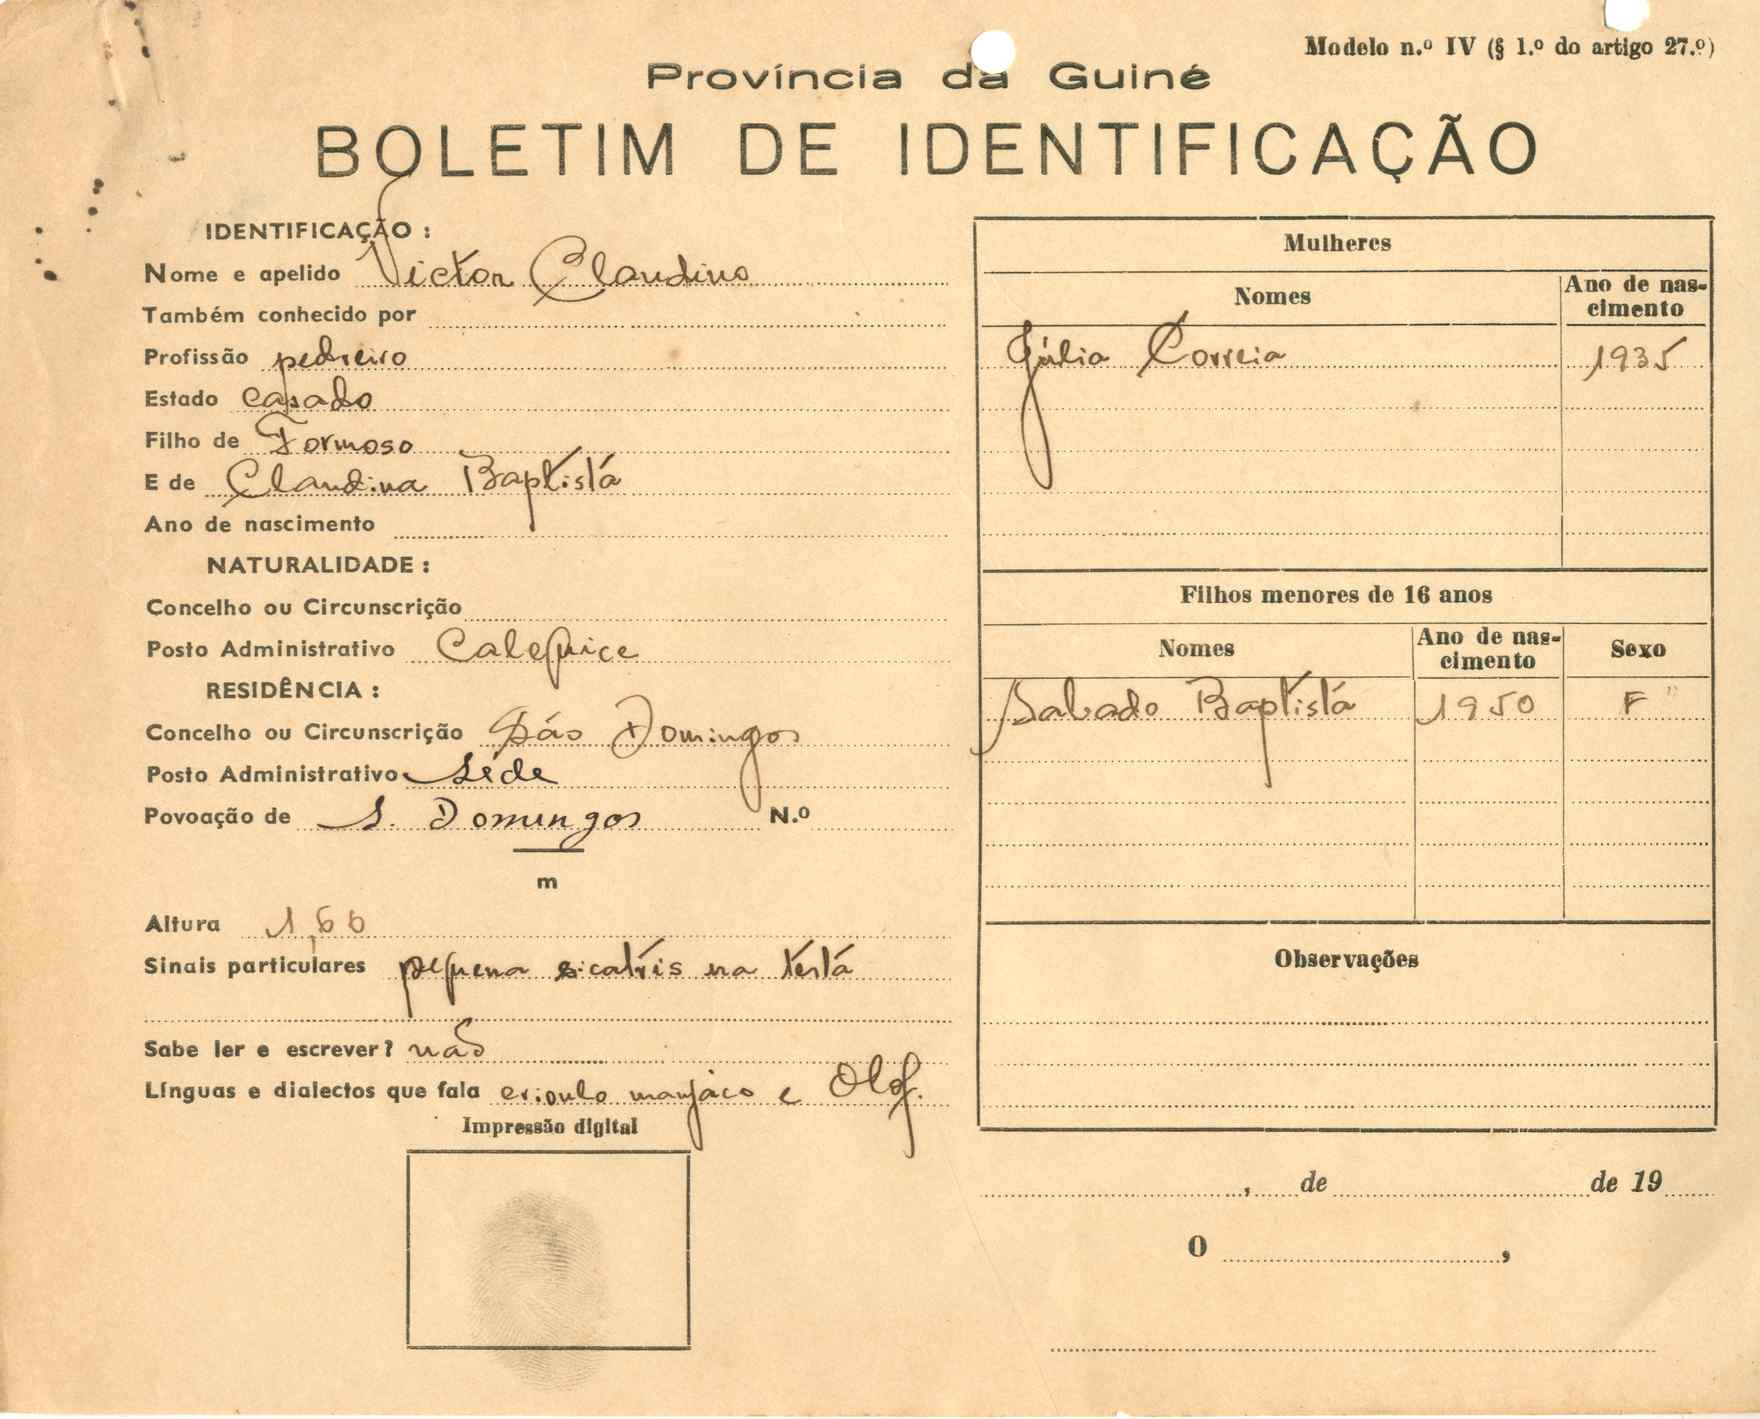 Modelo n.º IV (§ 1.º do artigo 27.º)
Província da Guiné
BOLETIM DE IDENTIFICAÇÃO
IDENTIFICAÇÃO :
Nome e apelido Victor Claudino
Também conhecido por
Profissão pedreiro
Estado casado
Filho de Formoso
E de Claudina Baptista
Ano de nascimento
NATURALIDADE :
Concelho ou Circunscrição
Posto Administrativo Calequice
RESIDÊNCIA :
Concelho ou Circunscrição São Domingos
Posto Administrativo Séde
Povoação de S. Domingos N.º
m
Altura 1,66
Sinais particulares pequena sicatris na testa
Sabe ler e escrever? não
Línguas e dialectos que fala crioulo manjaco e Olof.
Impressão digital
Mulheres
Nomes Ano de nas-
cimento
Júlia Correia 1935
Filhos menores de 16 anos
Nomes Ano de nas-
cimento Sexo
Sabado Baptista 1950 F
Observações
, de de 19
O ,